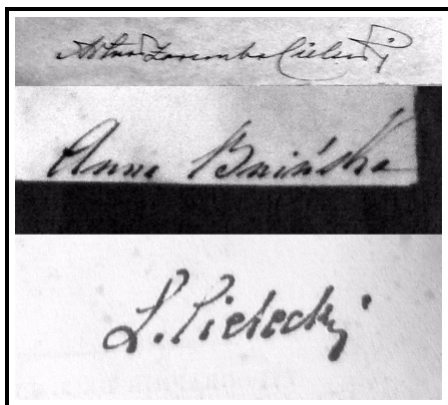 Artur Zaremba Cielecki
Anna Bnińska
L. Cielecki